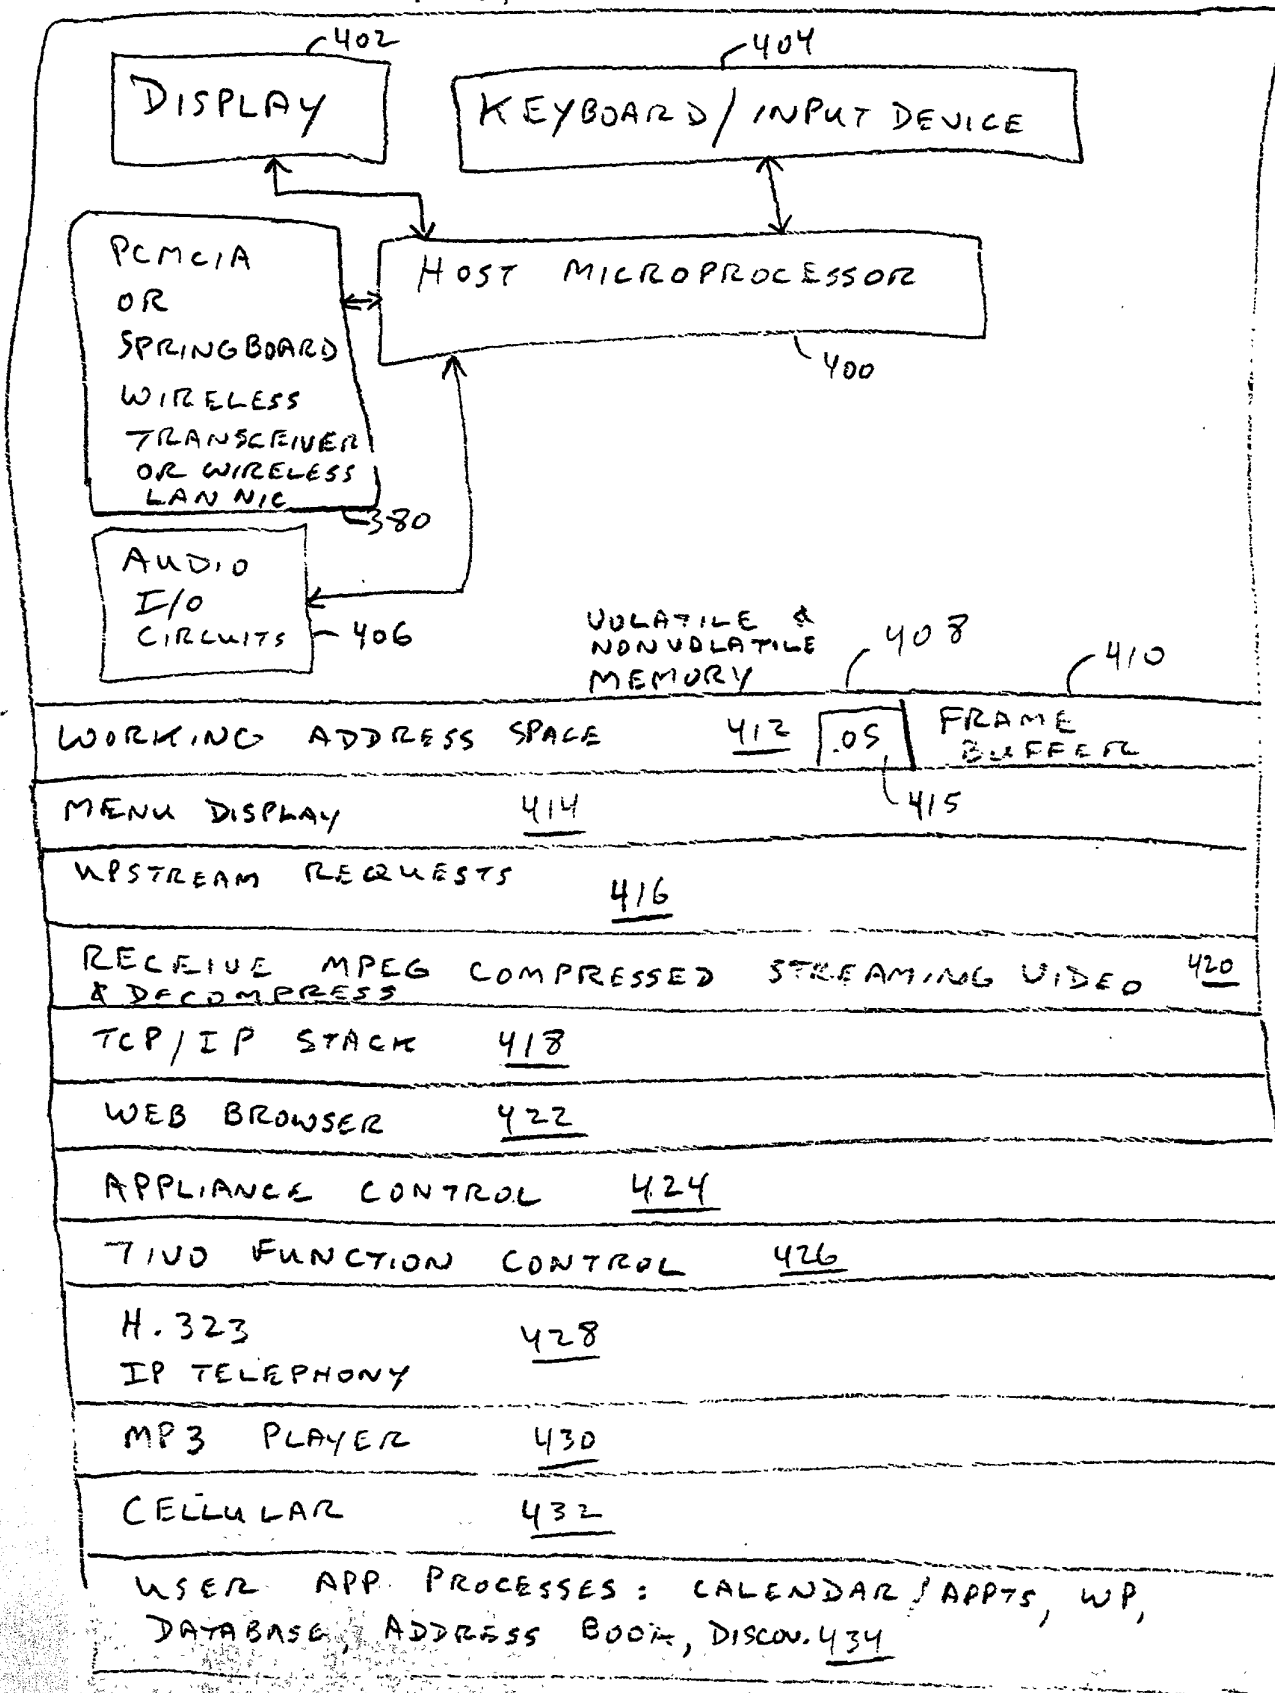 402
DISPLAY
404
KEYBOARD/INPUT DEVICE
PCMCIA
OR
SPRINGBOARD
WIRELESS
TRANSCEIVER
OR WIRELESS
LAN NIC
380
HOST MICROPROCESSOR
400
AUDIO
I/O
CIRCUITS
406
VOLATILE &
NONVOLATILE
MEMORY
408
410
WORKING ADDRESS SPACE 412
OS
415
FRAME
BUFFER
MENU DISPLAY 414
UPSTREAM REQUESTS 416
RECEIVE MPEG COMPRESSED STREAMING VIDEO 420
& DECOMPRESS
TCP/IP STACK 418
WEB BROWSER 422
APPLIANCE CONTROL 424
TIVO FUNCTION CONTROL 426
H.323 428
IP TELEPHONY
MP3 PLAYER 430
CELLULAR 432
USER APP. PROCESSES: CALENDAR/APPTS, WP,
DATABASE, ADDRESS BOOK, DISCOV. 434